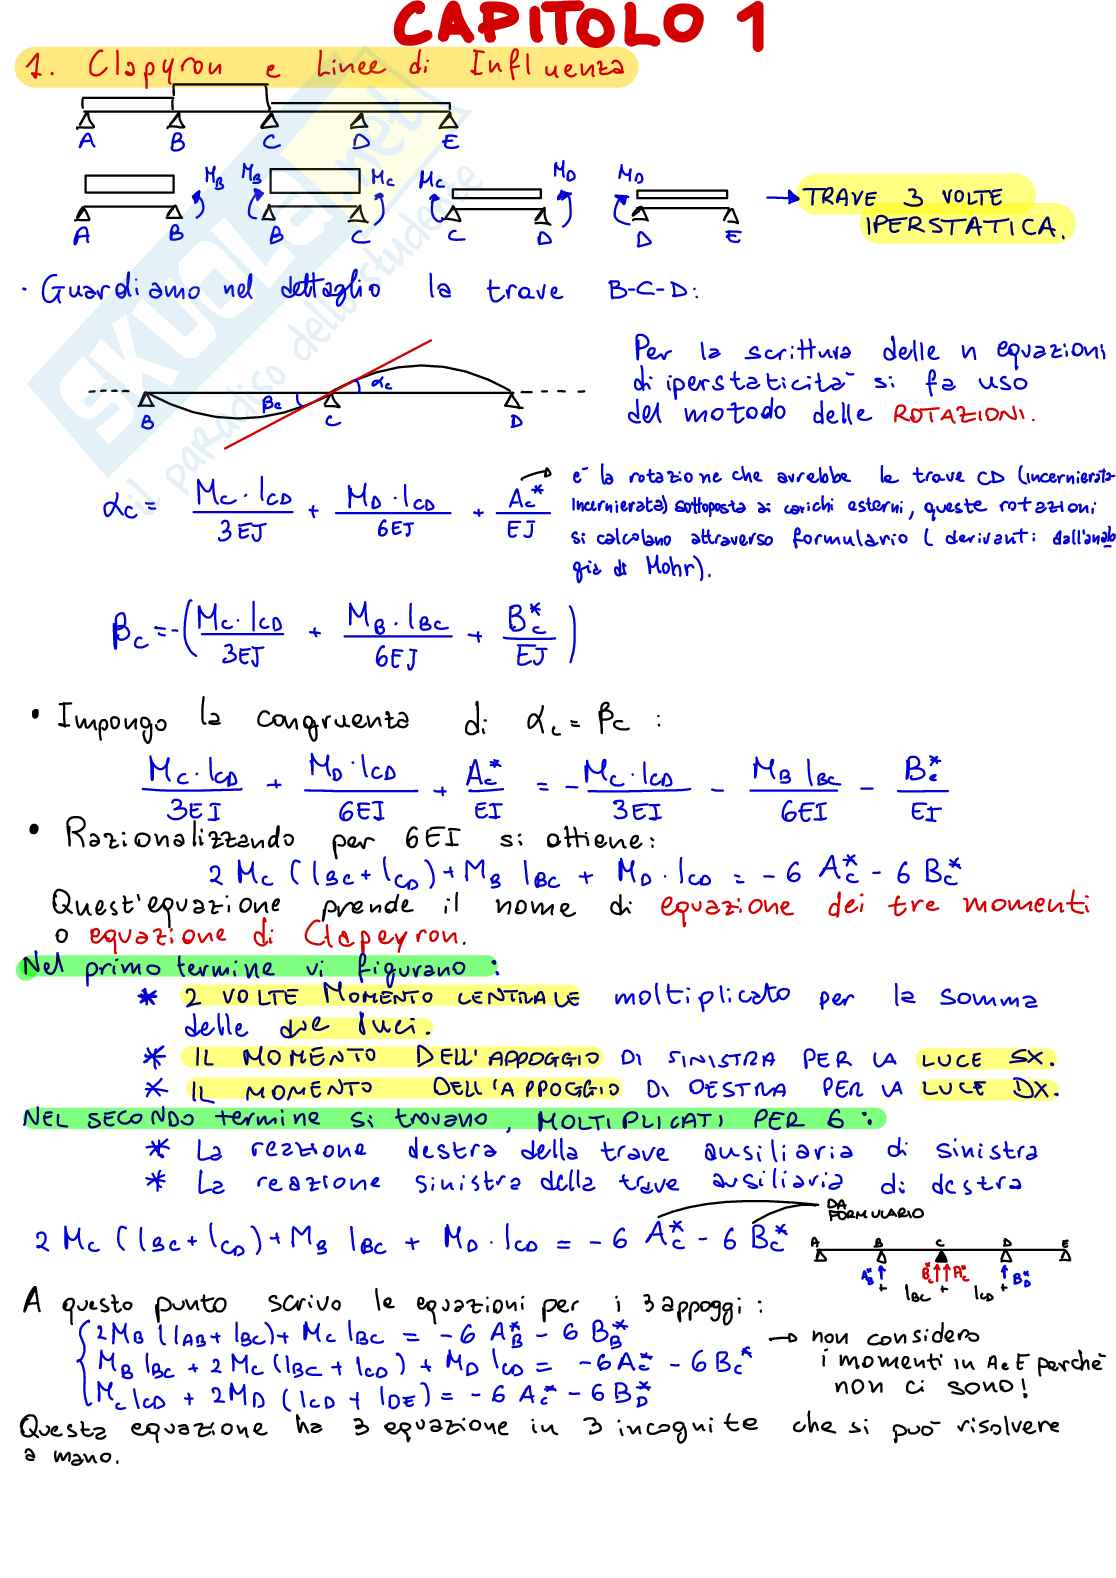 CAPITOLO 1
1. Clapyron e Linee di Influenza
A B C D E
M_B M_B M_C M_C M_D M_D
A B B C C D D E
→ TRAVE 3 VOLTE
IPERSTATICA.
· Guardiamo nel dettaglio la trave B-C-D:
Per la scrittura delle n equazioni
di iperstaticità si fa uso
del motodo delle ROTAZIONI.
β_C α_C
B C D
α_C = M_C · l_CD / 3EJ + M_D · l_CD / 6EJ + A_C* / EJ
è la rotazione che avrebbe la trave CD (incernierata-
Incernierata) sottoposta ai carichi esterni, queste rotazioni
si calcolano attraverso formulario (derivanti dall'analo
gia di Mohr).
β_C = -( M_C · l_CD / 3EJ + M_B · l_BC / 6EJ + B_C* / EJ )
• Impongo la congruenza di α_C = β_C :
M_C · l_CD / 3EI + M_D · l_CD / 6EI + A_C* / EI = - M_C · l_CD / 3EI - M_B l_BC / 6EI - B_C* / EI
• Razionalizzando per 6EI si ottiene:
2 M_C (l_BC + l_CD) + M_B l_BC + M_D · l_CD = - 6 A_C* - 6 B_C*
Quest'equazione prende il nome di equazione dei tre momenti
o equazione di Clapeyron.
Nel primo termine vi figurano :
* 2 VOLTE MOMENTO CENTRALE moltiplicato per la somma
delle due luci.
* IL MOMENTO DELL'APPOGGIO DI SINISTRA PER LA LUCE SX.
* IL MOMENTO DELL'APPOGGIO DI DESTRA PER LA LUCE DX.
NEL SECONDO termine si trovano, MOLTIPLICATI PER 6 :
* La reazione destra della trave ausiliaria di sinistra
* La reazione sinistra della trave ausiliaria di destra
DA
FORMULARIO
2 M_C (l_BC + l_CD) + M_B l_BC + M_D · l_CD = - 6 A_C* - 6 B_C*
A B C D E
A_B* B_C* A_C* B_D*
l_BC l_CD
A questo punto scrivo le equazioni per i 3 appoggi :
2M_B (l_AB + l_BC) + M_C l_BC = - 6 A_B* - 6 B_B*
M_B l_BC + 2 M_C (l_BC + l_CD) + M_D l_CD = - 6 A_C* - 6 B_C*
M_C l_CD + 2M_D (l_CD + l_DE) = - 6 A_C* - 6 B_D*
→ non considero
i momenti in A e E perchè
non ci sono!
Questa equazione ha 3 equazione in 3 incognite che si può risolvere
a mano.
SKUOLA.net
il paradiso dello studente